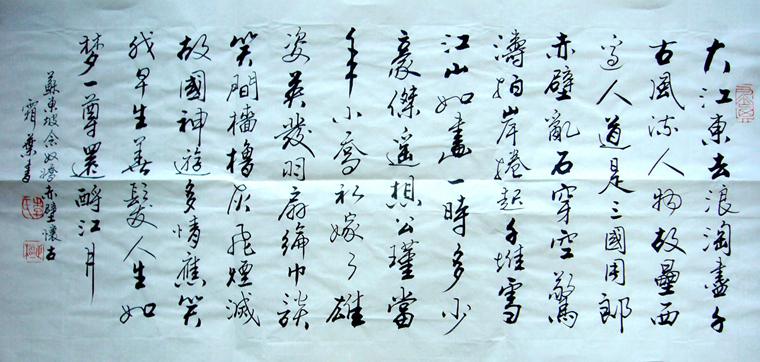 大江東去浪淘盡千
古風流人物故壘西
邊人道是三國周郎
赤壁亂石穿空驚
濤拍岸捲起千堆雪
江山如畫一時多少
豪傑遙想公瑾當
年小喬初嫁了雄
姿英發羽扇綸巾談
笑間檣櫓灰飛煙滅
故國神遊多情應笑
我早生華髮人生如
梦一尊還酹江月
蘇東坡念奴嬌赤壁懷古
霜葉書